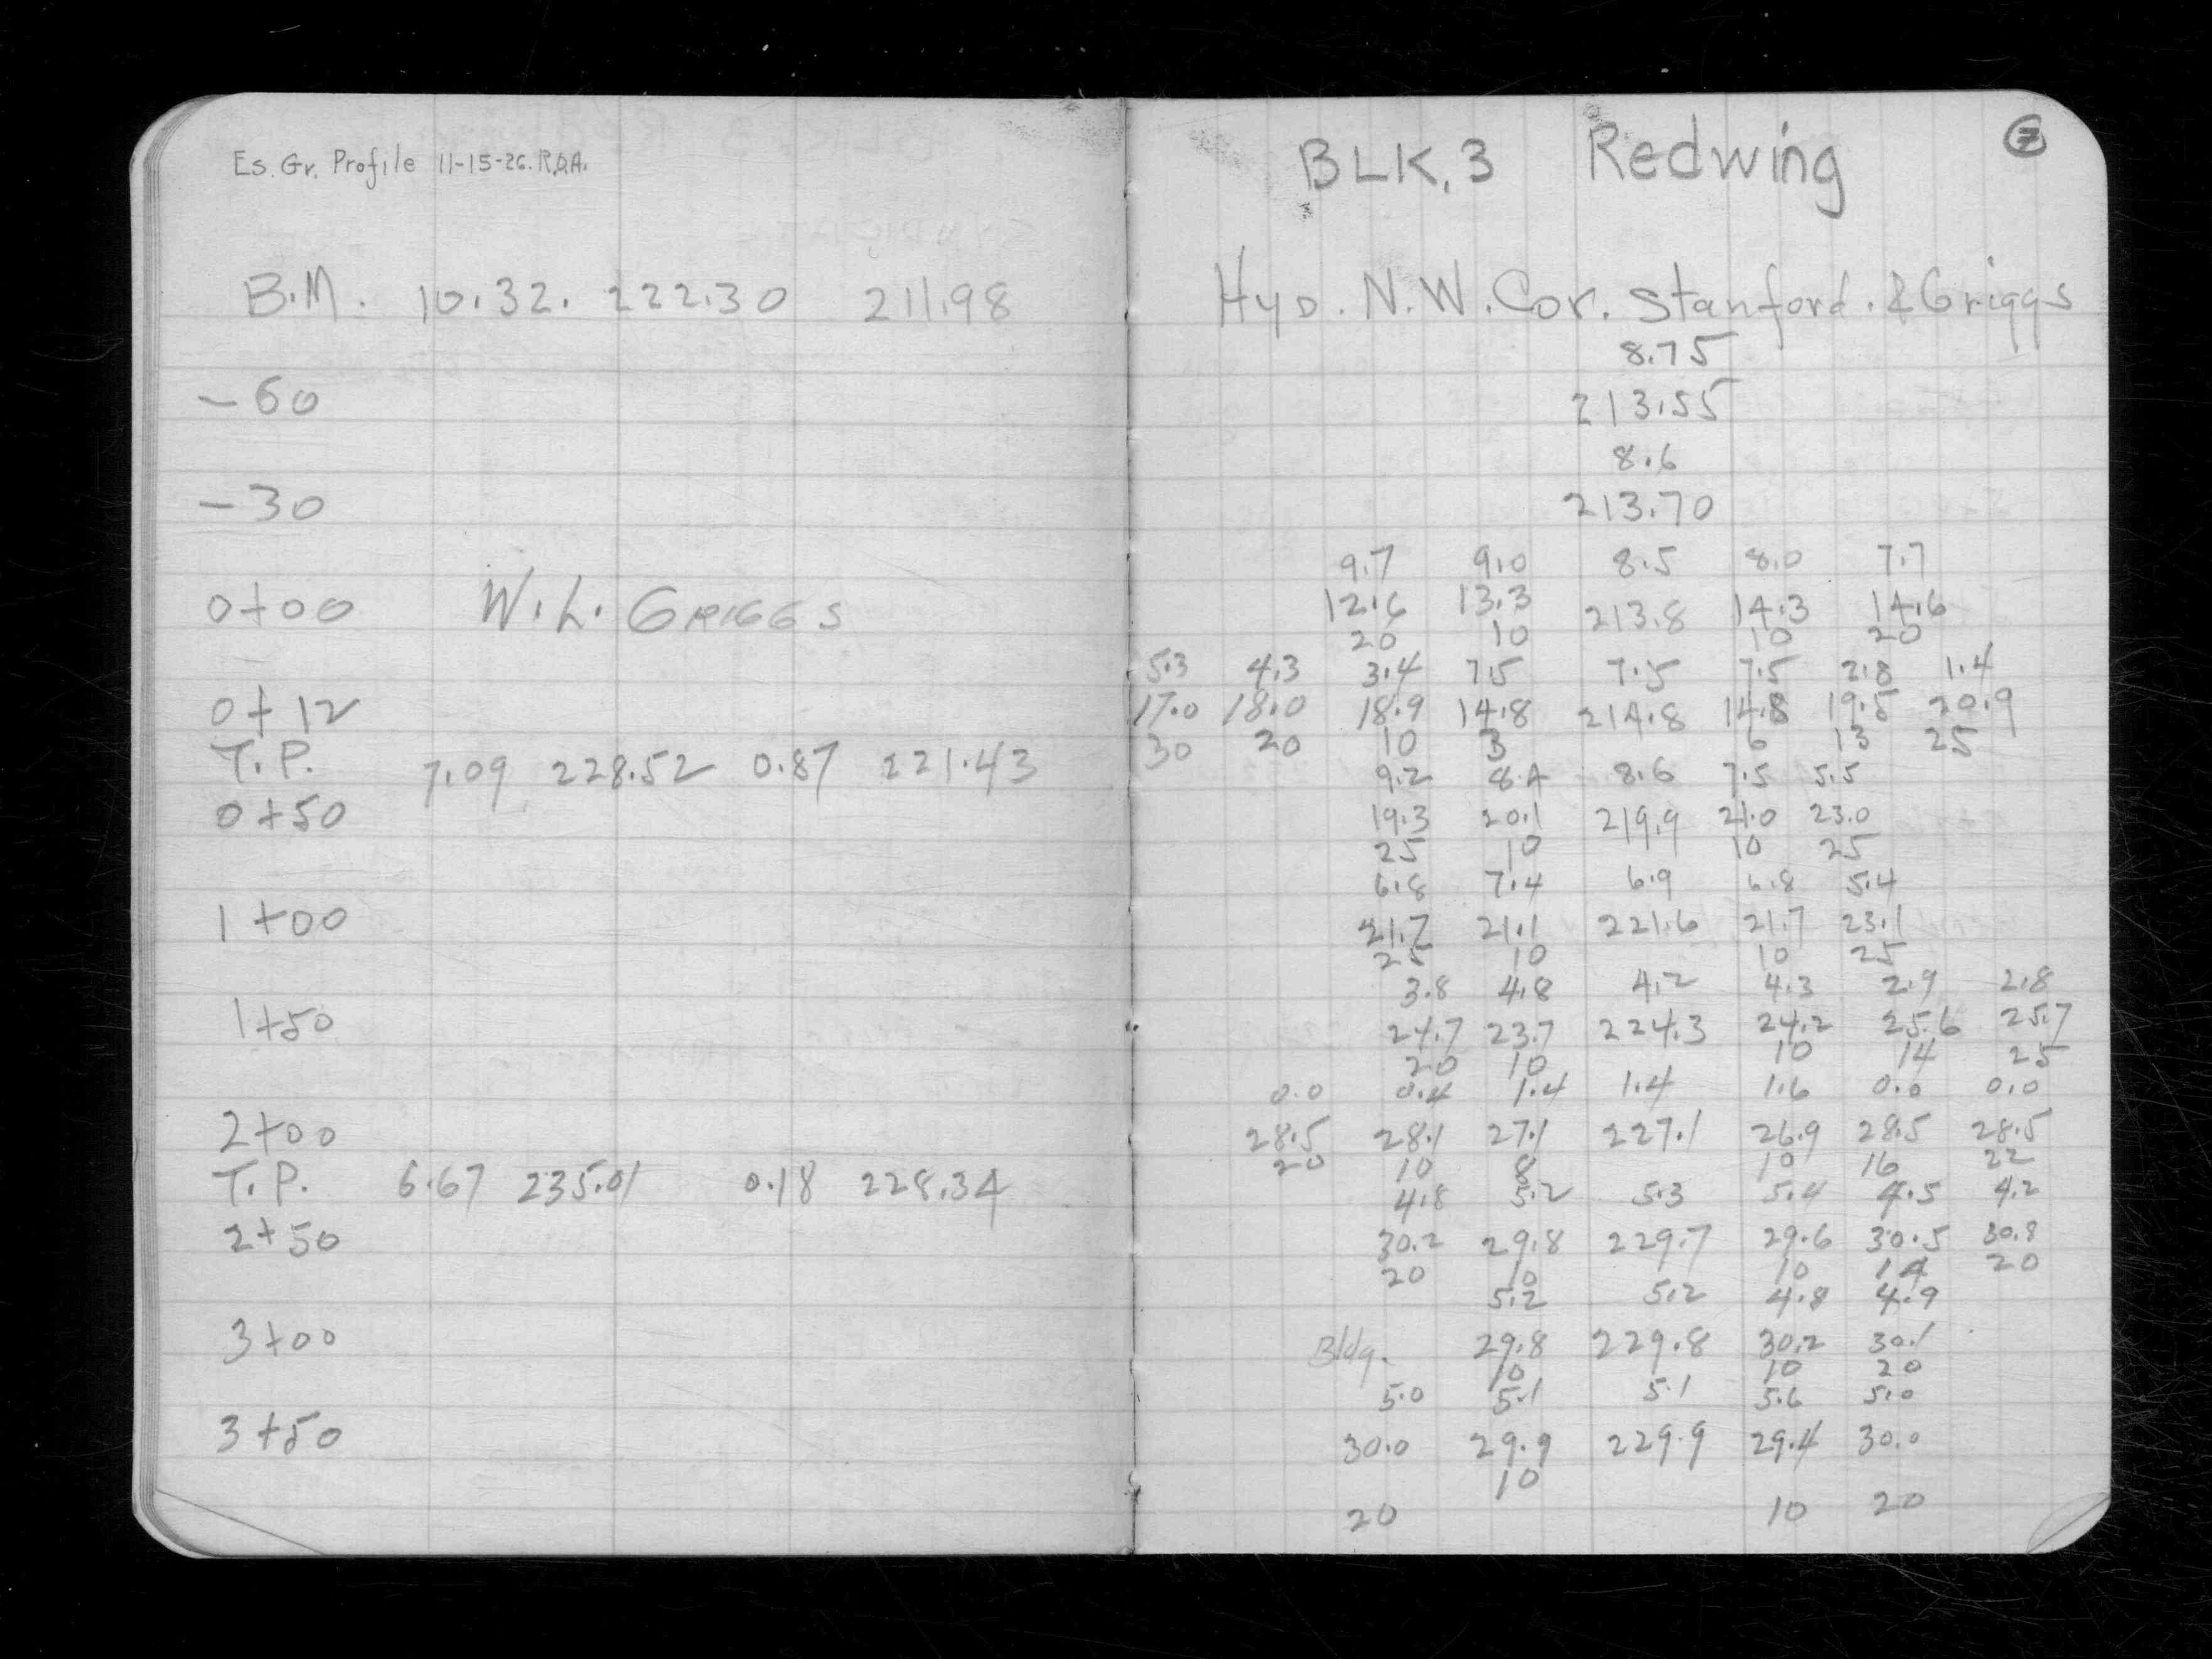 Es. Gr. Profile 11-15-26. R.Q.A.
B.M. 10.32. 222.30 211.98
-60
-30
0+00 W.L. GRIGGS
0+12
T.P. 7.09 228.52 0.87 221.43
0+50
1+00
1+50
2+00
T.P. 6.67 235.01 0.18 228.34
2+50
3+00
3+50
BLK. 3 Redwing 7
Hyd. N.W. Cor. Stanford. & Griggs
8.75
213.55
8.6
213.70
9.7 9.0 8.5 8.0 7.7
12.6 13.3 213.8 14.3 14.6
20 10 10 20
5.3 4.3 3.4 7.5 7.5 7.5 2.8 1.4
17.0 18.0 18.9 14.8 214.8 14.8 19.5 20.9
30 20 10 3 6 13 25
9.2 8.4 8.6 7.5 5.5
19.3 20.1 219.9 21.0 23.0
25 10 10 25
6.8 7.4 6.9 6.8 5.4
21.7 21.1 221.6 21.7 23.1
25 10 10 25
3.8 4.8 4.2 4.3 2.9 2.8
24.7 23.7 224.3 24.2 25.6 25.7
20 10 10 14 25
0.0 0.4 1.4 1.4 1.6 0.0 0.0
28.5 28.1 27.1 227.1 26.9 28.5 28.5
20 10 8 10 16 22
4.8 5.2 5.3 5.4 4.5 4.2
30.2 29.8 229.7 29.6 30.5 30.8
20 10 10 14 20
5.2 5.2 4.8 4.9
Bldg. 29.8 229.8 30.2 30.1
10 10 20
5.0 5.1 5.1 5.6 5.0
30.0 29.9 229.9 29.4 30.0
10
20 10 20